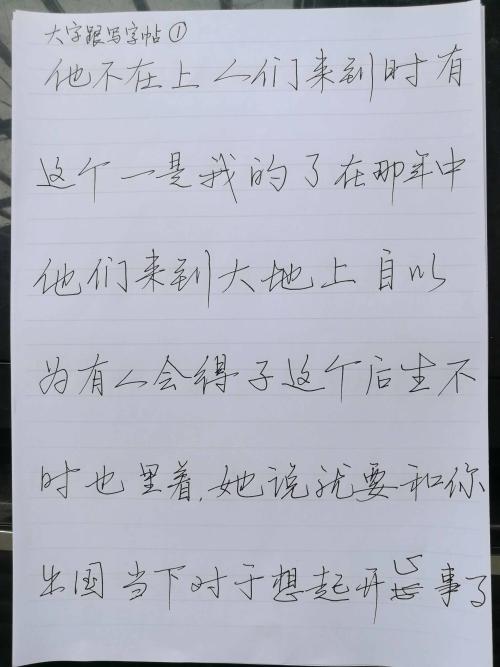 大字跟写字帖①
他不在上人们来到时有
这个一是我的了在那年中
他们来到大地上自以
为有人会得子这个后生不
时也里着,她说就要和你
出国当下对于想起开心事了